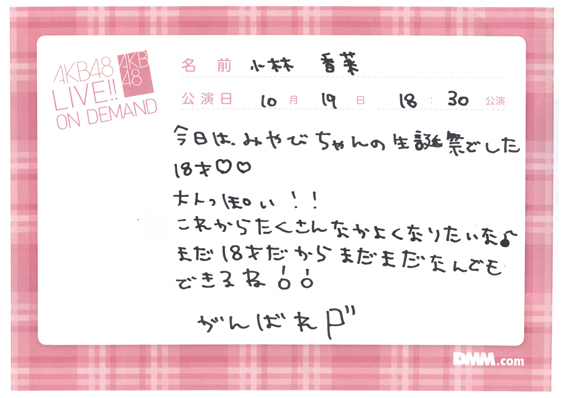 AKB48
LIVE!!
ON DEMAND
AKB
48
名 前 小林 香菜
公演日 10 月 19 日 18 : 30 公演
今日は、みやびちゃんの生誕祭でした
18才♡♡
大人っぽい!!
これからたくさんなかよくなりたいな♪
まだ18才だからまだまだなんでも
できるね!!
がんばれ
DMM.com